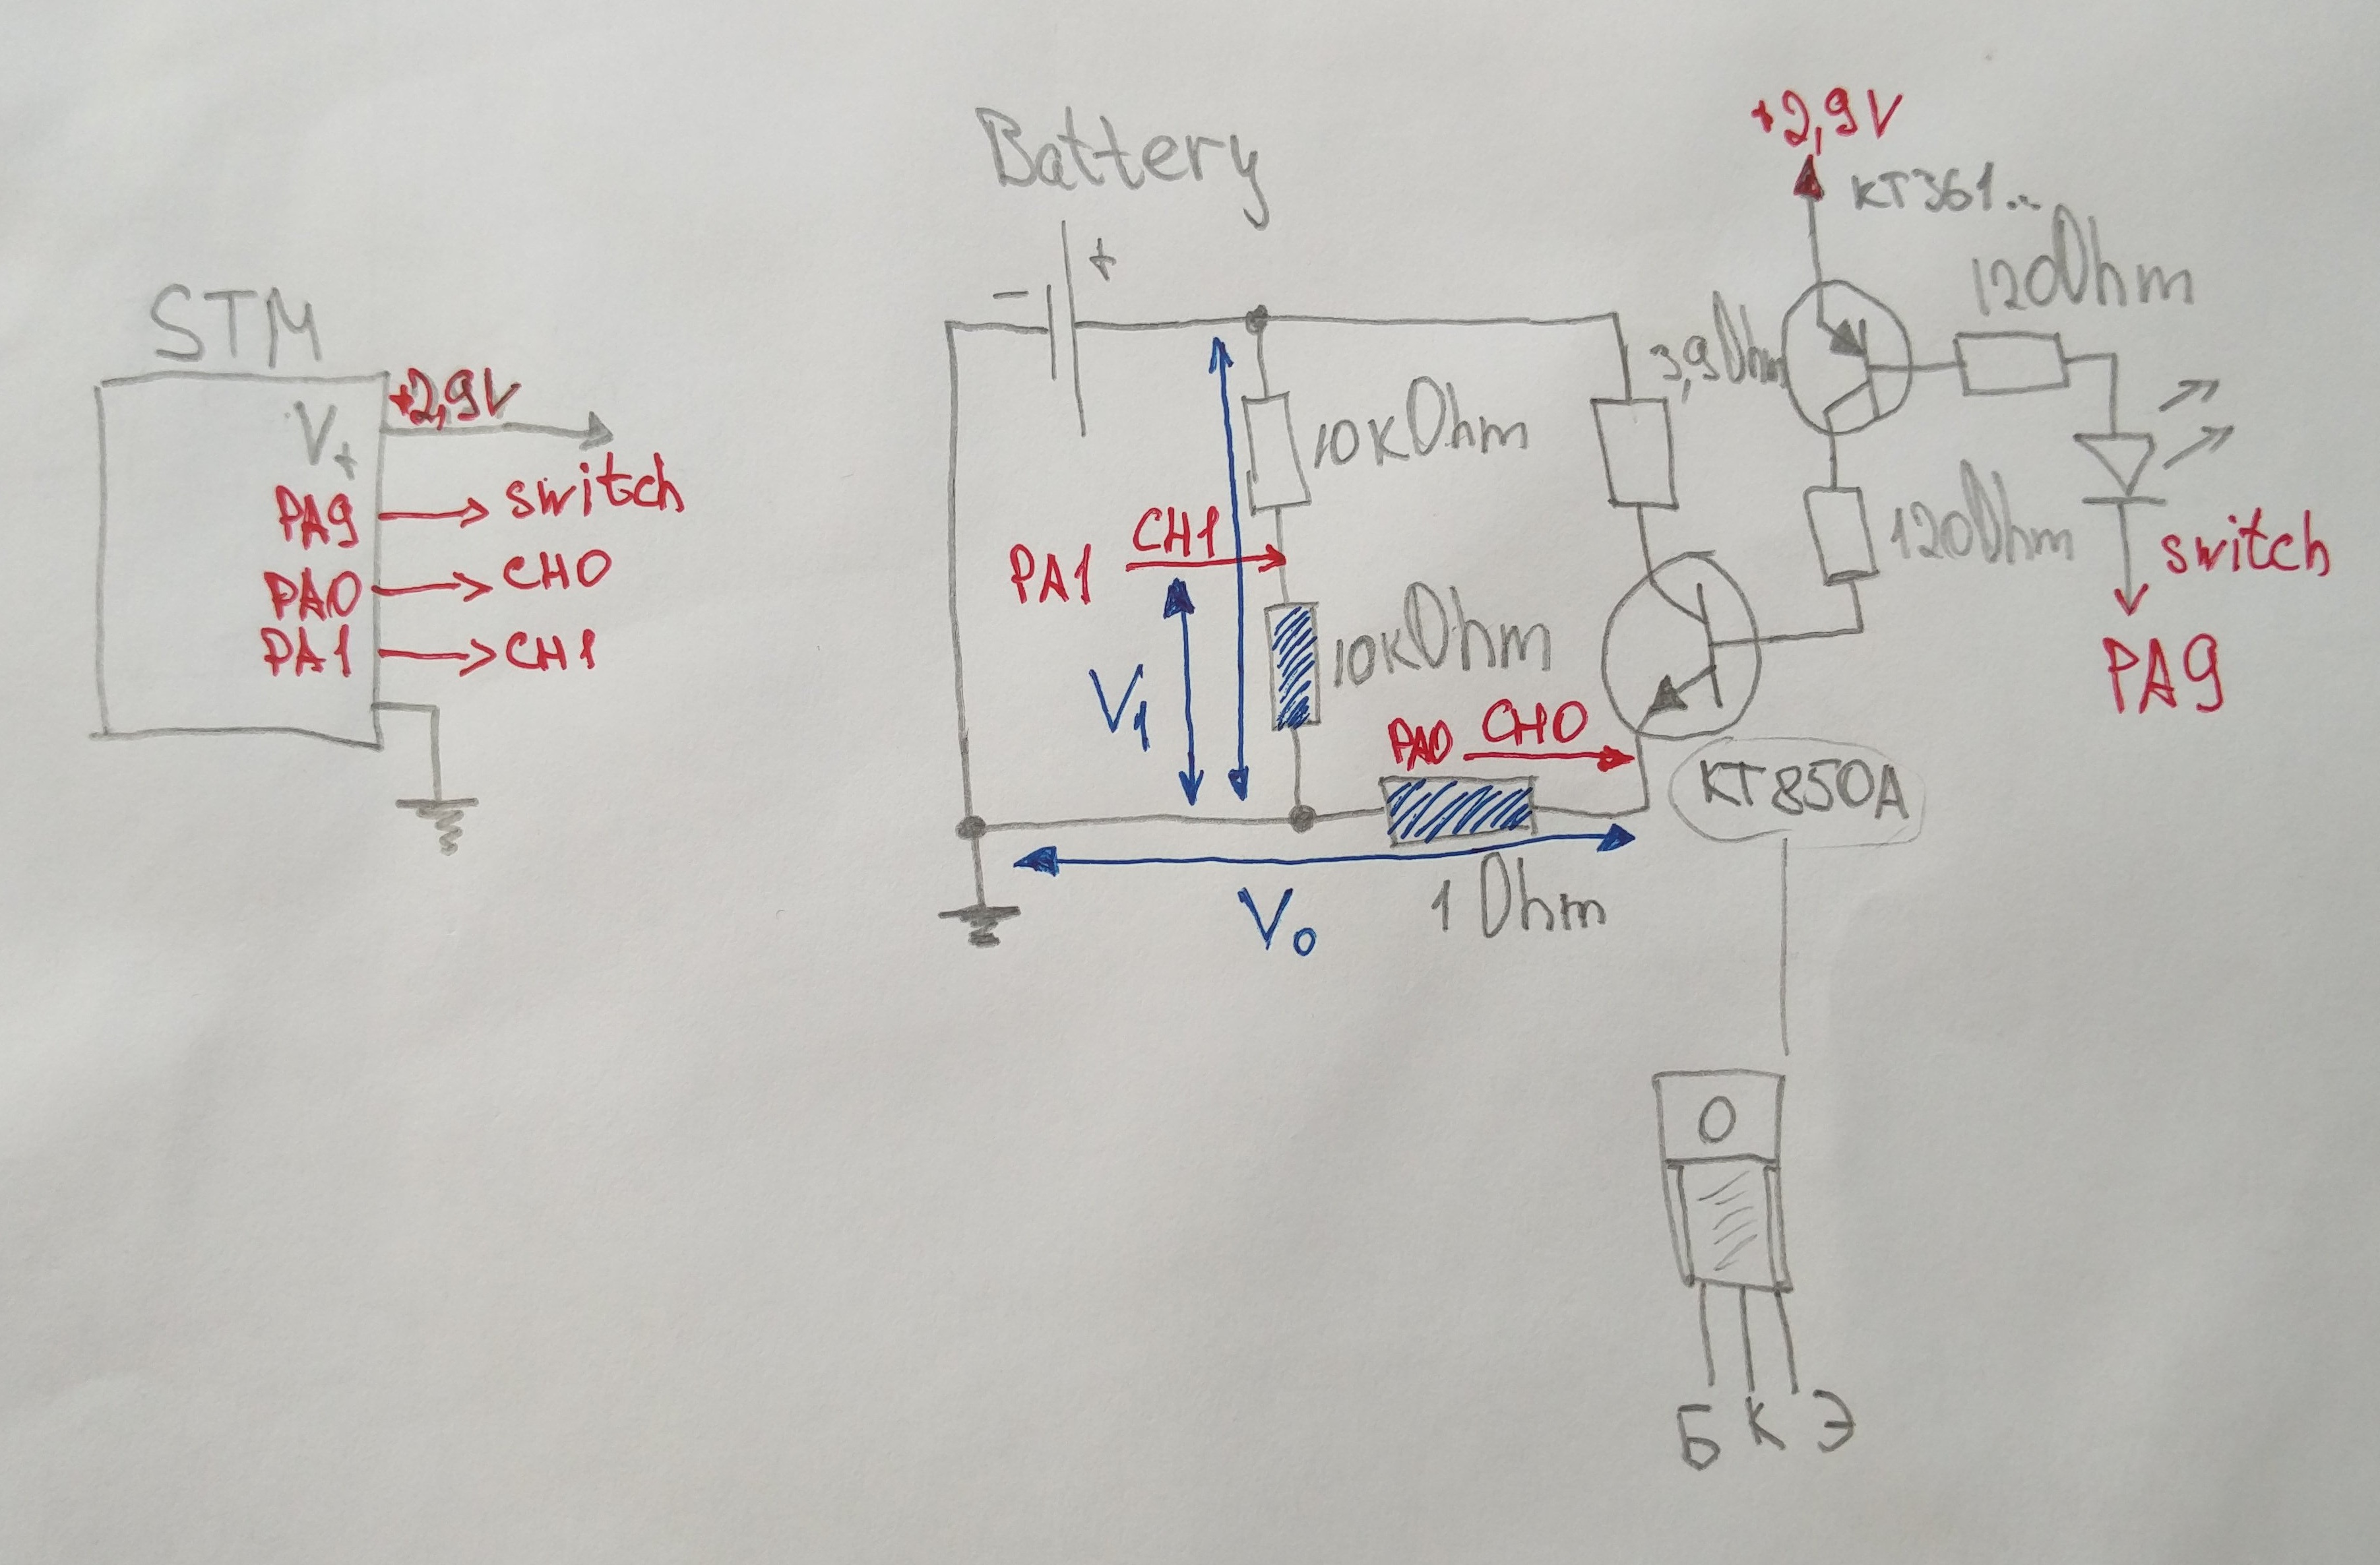 STM
+2,9V
V+
PA9 switch
PA0 CH0
PA1 CH1
Battery
- +
10kOhm
PA1 CH1
10kOhm
V1
PA0 CH0
V0
1 Ohm
3,9Ohm
+2,9V
KT361..
120Ohm
120Ohm
switch
PA9
KT850A
Б К Э